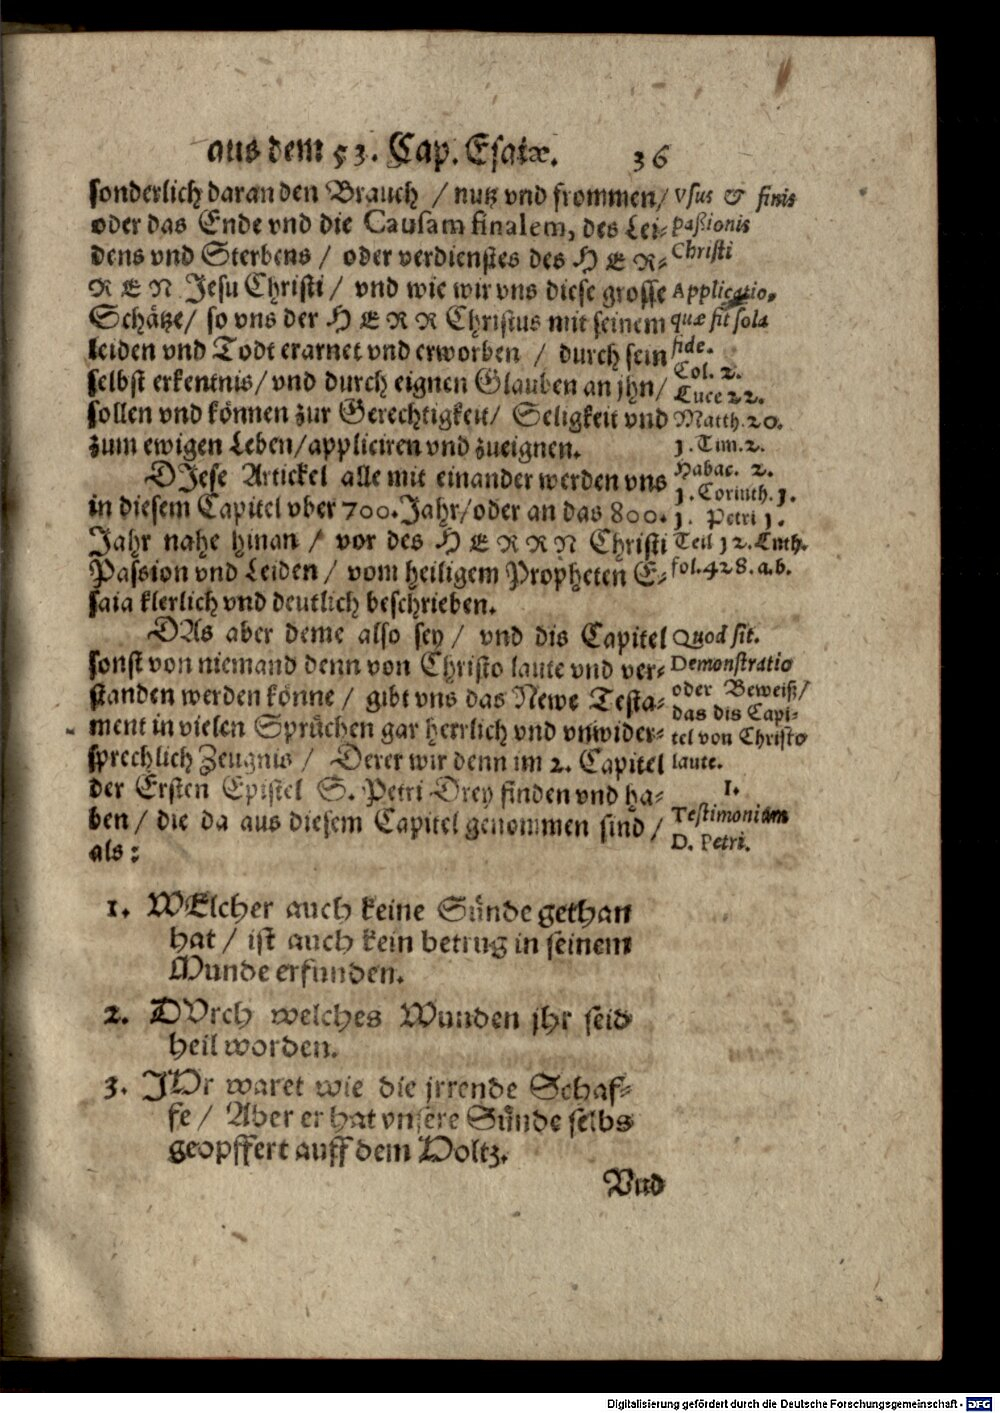 aus dem 53. Cap. Esaiæ. 36
sonderlich daran den Brauch / nutz vnd frommen /
oder das Ende vnd die Causam finalem, des Lei-
dens vnd Sterbens / oder verdienstes des HER-
REN Jesu Christi / vnd wie wir vns diese grosse
Schätze / so vns der HERR Christus mit seinem
leiden vnd Todt erarnet vnd erworben / durch sein
selbst erkentnis / vnd durch eignen Glauben an jhn /
sollen vnd können zur Gerechtigkeit / Seligkeit vnd
zum ewigen Leben / appliciren vnd zueignen.
DJese Artickel alle mit einander werden vns
in diesem Capitel vber 700. Jahr / oder an das 800.
Jahr nahe hinan / vor des HERRN Christi
Passion vnd Leiden / vom heiligem Propheten E-
saia klerlich vnd deutlich beschrieben.
DAs aber deme also sey / vnd dis Capitel
sonst von niemand denn von Christo laute vnd ver-
standen werden könne / gibt vns das Newe Testa-
ment in vielen Sprüchen gar herrlich vnd vnwider-
sprechlich Zeugnis / Derer wir denn im 2. Capitel
der Ersten Epistel S. Petri Drey finden vnd ha-
ben / die da aus diesem Capitel genommen sind /
als:
vsus & finis
passionis
Christi
Applicatio,
quæ fit sola
fide.
Col. 2.
Luce 22.
Matth. 20.
1. Tim. 2.
Habac. 2.
1. Corinth. 1.
1. Petri 1.
Teil 12. Luth.
fol. 428. a. b.
Quod sit.
Demonstratio
oder Beweiß /
das dis Capi-
tel von Christo
laute.
1.
Testimonium
D. Petri.
1. WElcher auch keine Sünde gethan
hat / ist auch kein betrug in seinem
Munde erfunden.
2. DVrch welches Wunden jhr seid
heil worden.
3. JHr waret wie die jrrende Schaf-
fe / Aber er hat vnsere Sünde selbs
geopffert auff dem Holtz.
Vnd
Digitalisierung gefördert durch die Deutsche Forschungsgemeinschaft - DFG